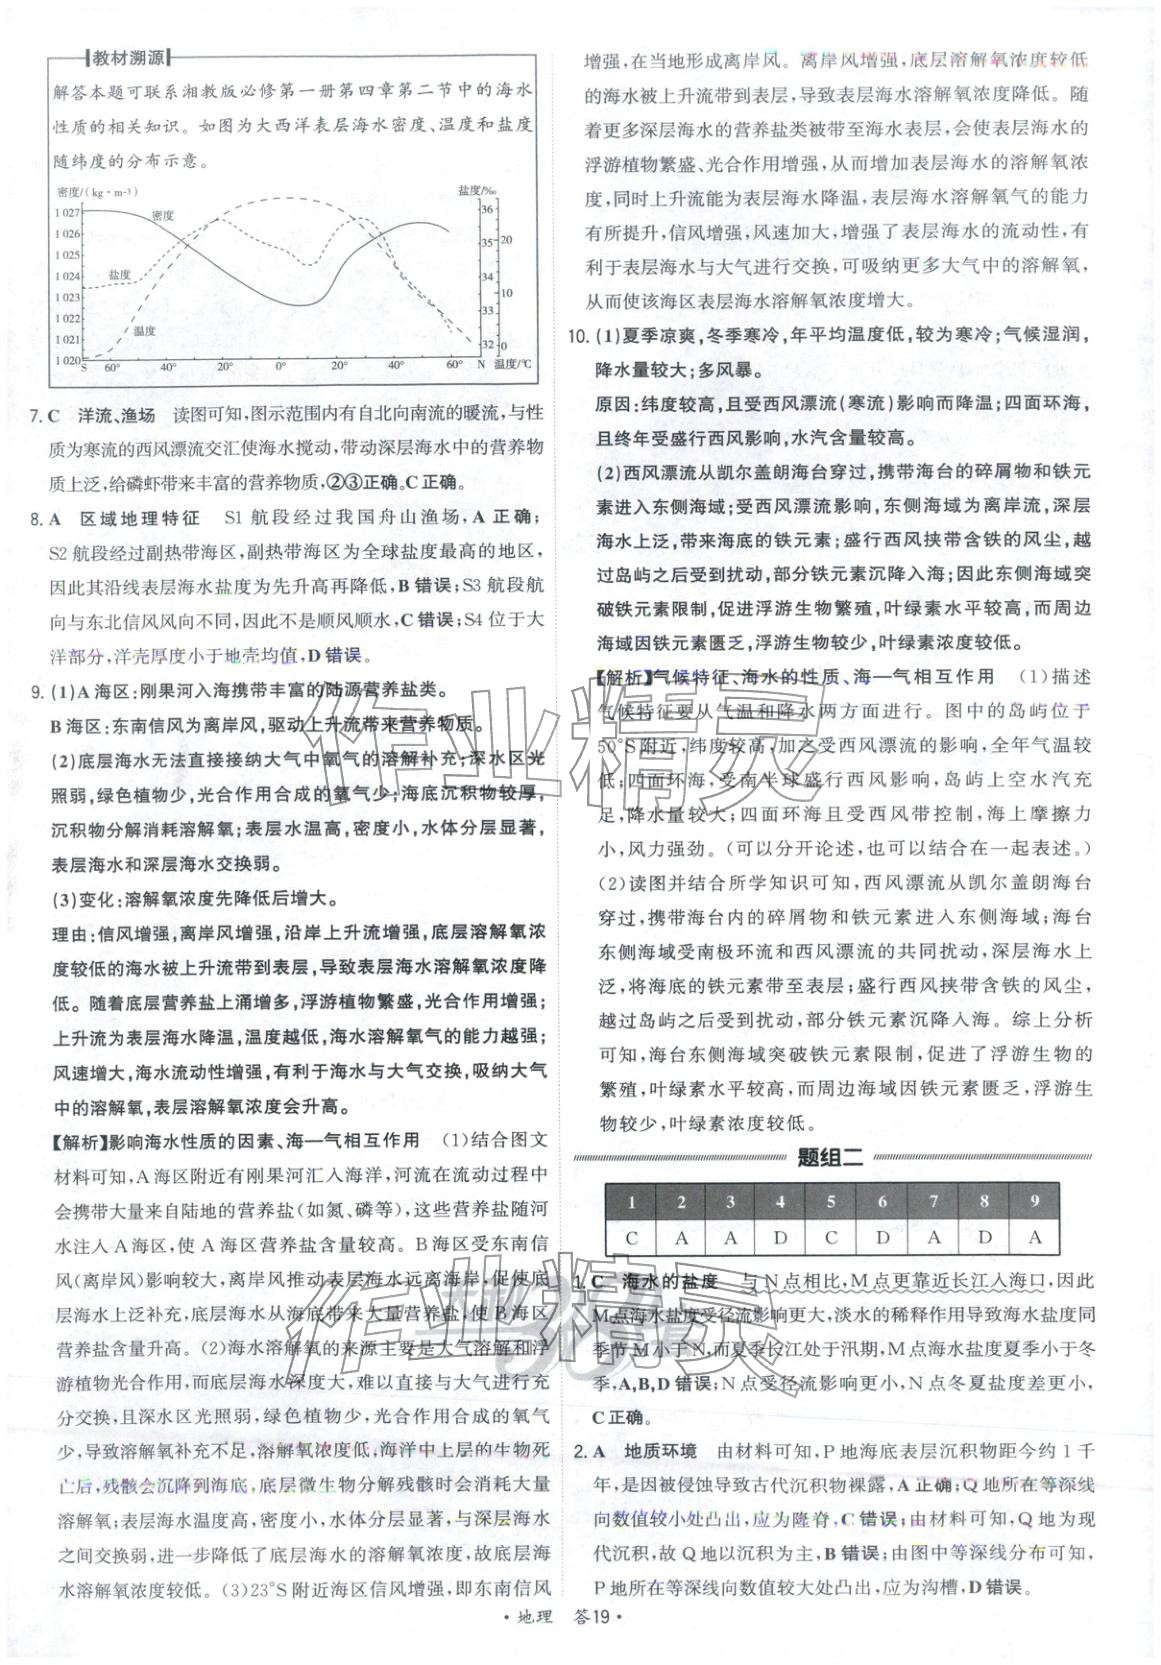 教材溯源
解答本题可联系湘教版必修第一册第四章第二节中的海水
性质的相关知识。如图为大西洋表层海水密度、温度和盐度
随纬度的分布示意。
密度/(kg·m-3)
盐度/‰
1 027
1 026
1 025
1 024
1 023
1 022
1 021
1 020
密度
盐度
温度
36
35
34
33
32
20
10
0
S 60° 40° 20° 0° 20° 40° 60° N 温度/℃
7. C 洋流、渔场 读图可知,图示范围内有自北向南流的暖流,与性
质为寒流的西风漂流交汇使海水搅动,带动深层海水中的营养物
质上泛,给磷虾带来丰富的营养物质,②③正确。C正确。
8. A 区域地理特征 S1 航段经过我国舟山渔场,A 正确;
S2 航段经过副热带海区,副热带海区为全球盐度最高的地区,
因此其沿线表层海水盐度为先升高再降低,B 错误;S3 航段航
向与东北信风风向不同,因此不是顺风顺水,C 错误;S4 位于大
洋部分,洋壳厚度小于地壳均值,D 错误。
9. (1)A 海区:刚果河入海携带丰富的陆源营养盐类。
B 海区:东南信风为离岸风,驱动上升流带来营养物质。
(2)底层海水无法直接接纳大气中氧气的溶解补充;深水区光
照弱,绿色植物少,光合作用合成的氧气少;海底沉积物较厚,
沉积物分解消耗溶解氧;表层水温高,密度小,水体分层显著,
表层海水和深层海水交换弱。
(3)变化:溶解氧浓度先降低后增大。
理由:信风增强,离岸风增强,沿岸上升流增强,底层溶解氧浓
度较低的海水被上升流带到表层,导致表层海水溶解氧浓度降
低。随着底层营养盐上涌增多,浮游植物繁盛,光合作用增强;
上升流为表层海水降温,温度越低,海水溶解氧气的能力越强;
风速增大,海水流动性增强,有利于海水与大气交换,吸纳大气
中的溶解氧,表层溶解氧浓度会升高。
【解析】影响海水性质的因素、海—气相互作用 (1)结合图文
材料可知,A 海区附近有刚果河汇入海洋,河流在流动过程中
会携带大量来自陆地的营养盐(如氮、磷等),这些营养盐随河
水注入 A 海区,使 A 海区营养盐含量较高。B 海区受东南信
风(离岸风)影响较大,离岸风推动表层海水远离海岸,促使底
层海水上泛补充,底层海水从海底带来大量营养盐,使 B 海区
营养盐含量升高。(2)海水溶解氧的来源主要是大气溶解和浮
游植物光合作用,而底层海水深度大,难以直接与大气进行充
分交换,且深水区光照弱,绿色植物少,光合作用合成的氧气
少,导致溶解氧补充不足,溶解氧浓度低;海洋中上层的生物死
亡后,残骸会沉降到海底,底层微生物分解残骸时会消耗大量
溶解氧;表层海水温度高,密度小,水体分层显著,与深层海水
之间交换弱,进一步降低了底层海水的溶解氧浓度,故底层海
水溶解氧浓度较低。(3)23°S 附近海区信风增强,即东南信风
增强,在当地形成离岸风。离岸风增强,底层溶解氧浓度较低
的海水被上升流带到表层,导致表层海水溶解氧浓度降低。随
着更多深层海水的营养盐类被带至海水表层,会使表层海水的
浮游植物繁盛、光合作用增强,从而增加表层海水的溶解氧浓
度,同时上升流能为表层海水降温,表层海水溶解氧气的能力
有所提升,信风增强,风速加大,增强了表层海水的流动性,有
利于表层海水与大气进行交换,可吸纳更多大气中的溶解氧,
从而使该海区表层海水溶解氧浓度增大。
10. (1)夏季凉爽,冬季寒冷,年平均温度低,较为寒冷;气候湿润,
降水量较大;多风暴。
原因:纬度较高,且受西风漂流(寒流)影响而降温;四面环海,
且终年受盛行西风影响,水汽含量较高。
(2)西风漂流从凯尔盖朗海台穿过,携带海台的碎屑物和铁元
素进入东侧海域;受西风漂流影响,东侧海域为离岸流,深层
海水上泛,带来海底的铁元素;盛行西风挟带含铁的风尘,越
过岛屿之后受到扰动,部分铁元素沉降入海;因此东侧海域突
破铁元素限制,促进浮游生物繁殖,叶绿素水平较高,而周边
海域因铁元素匮乏,浮游生物较少,叶绿素浓度较低。
【解析】气候特征、海水的性质、海—气相互作用 (1)描述
气候特征要从气温和降水两方面进行。图中的岛屿位于
50°S 附近,纬度较高,加之受西风漂流的影响,全年气温较
低;四面环海,受南半球盛行西风影响,岛屿上空水汽充
足,降水量较大;四面环海且受西风带控制,海上摩擦力
小,风力强劲。(可以分开论述,也可以结合在一起表述。)
(2)读图并结合所学知识可知,西风漂流从凯尔盖朗海台
穿过,携带海台内的碎屑物和铁元素进入东侧海域;海台
东侧海域受南极环流和西风漂流的共同扰动,深层海水上
泛,将海底的铁元素带至表层;盛行西风挟带含铁的风尘,
越过岛屿之后受到扰动,部分铁元素沉降入海。综上分析
可知,海台东侧海域突破铁元素限制,促进了浮游生物的
繁殖,叶绿素水平较高,而周边海域因铁元素匮乏,浮游生
物较少,叶绿素浓度较低。
题组二
1 2 3 4 5 6 7 8 9
C A A D C D A D A
1. C 海水的盐度 与 N 点相比,M 点更靠近长江入海口,因此
M 点海水盐度受径流影响更大,淡水的稀释作用导致海水盐度同
季节 M 小于 N,而夏季长江处于汛期,M 点海水盐度夏季小于冬
季,A,B,D 错误;N 点受径流影响更小,N 点冬夏盐度差更小,
C 正确。
2. A 地质环境 由材料可知,P 地海底表层沉积物距今约 1 千
年,是因被侵蚀导致古代沉积物裸露,A 正确;Q 地所在等深线
向数值较小处凸出,应为隆脊,C 错误;由材料可知,Q 地为现
代沉积,故 Q 地以沉积为主,B 错误;由图中等深线分布可知,
P 地所在等深线向数值较大处凸出,应为沟槽,D 错误。
·地理 答19·
作业精灵
作业精灵